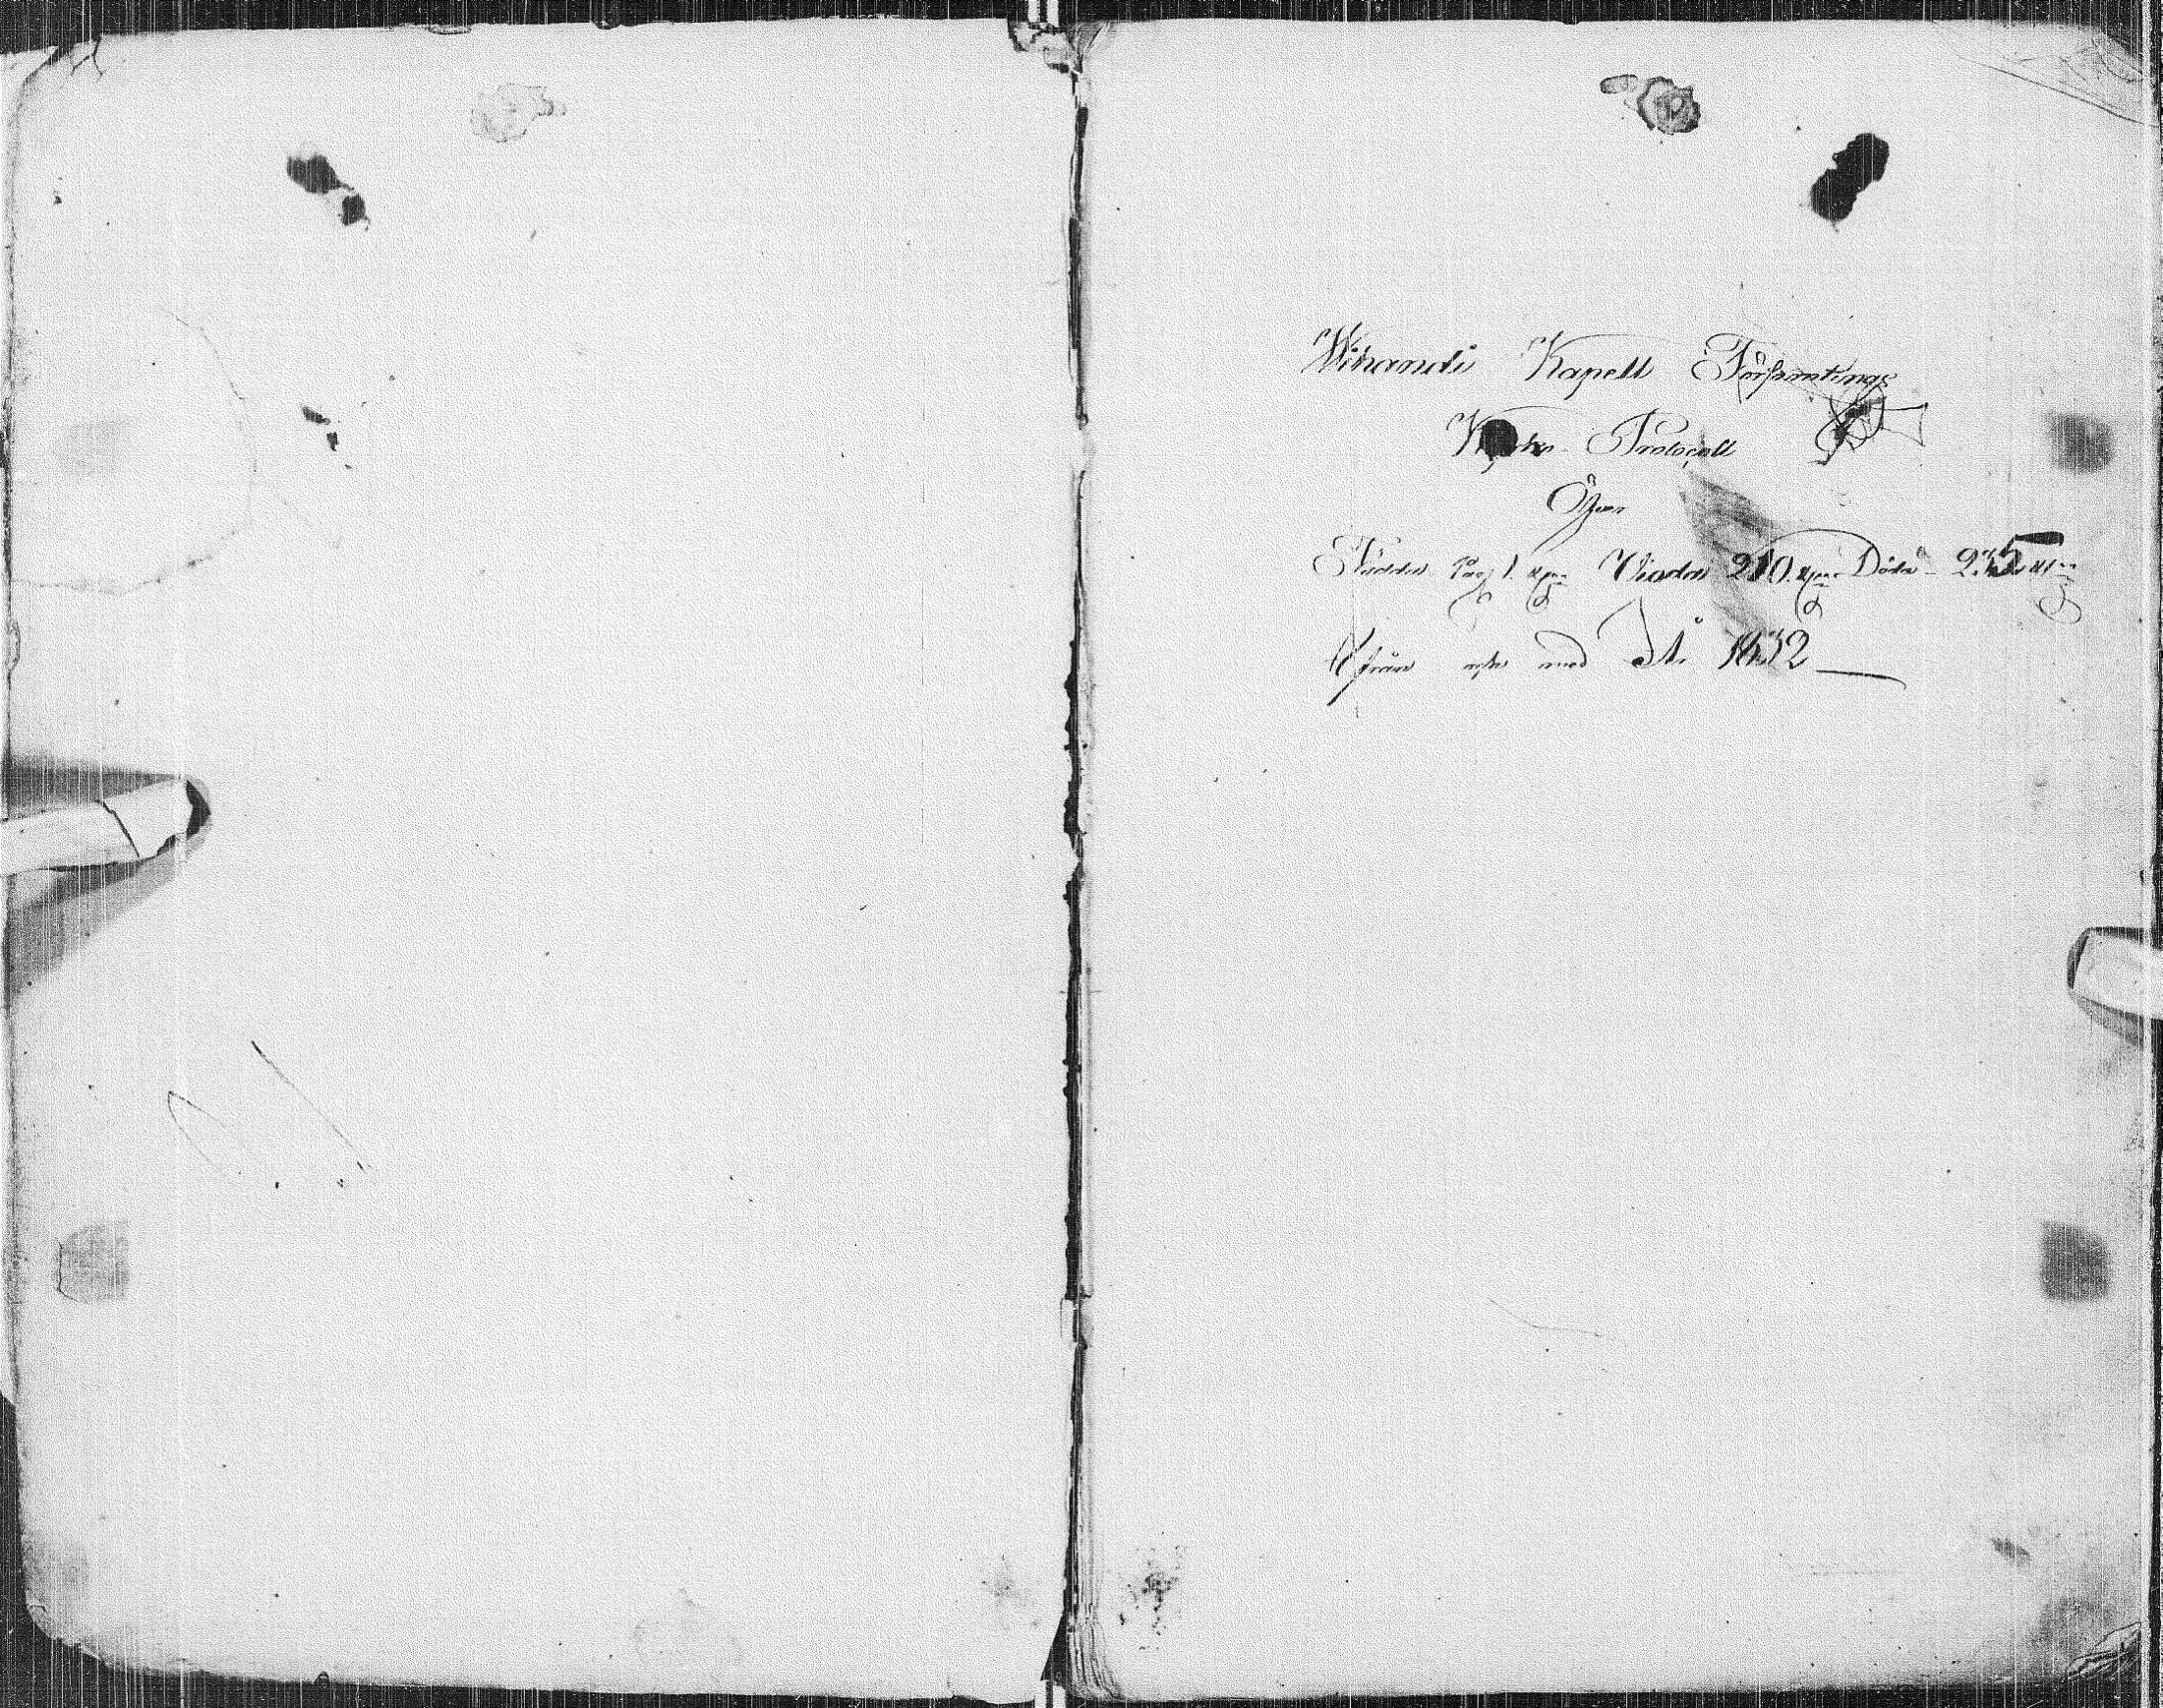 Wihandi Kapell Församlings
Kyrko Protocoll
Öfver
Födde Pag 1. Vigda 210. Döda 235
ifrån och med År 1832